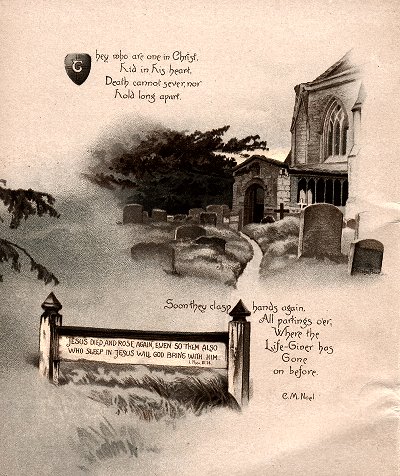 They who are one in Christ,
Hid in His heart,
Death cannot sever, nor
Hold long apart.
Soon they clasp hands again,
All partings o'er,
Where the
Life-Giver has
Gone
on before.
C.M. Noel
JESUS DIED, AND ROSE AGAIN, EVEN SO THEM ALSO
WHO SLEEP IN JESUS WILL GOD BRING WITH HIM.